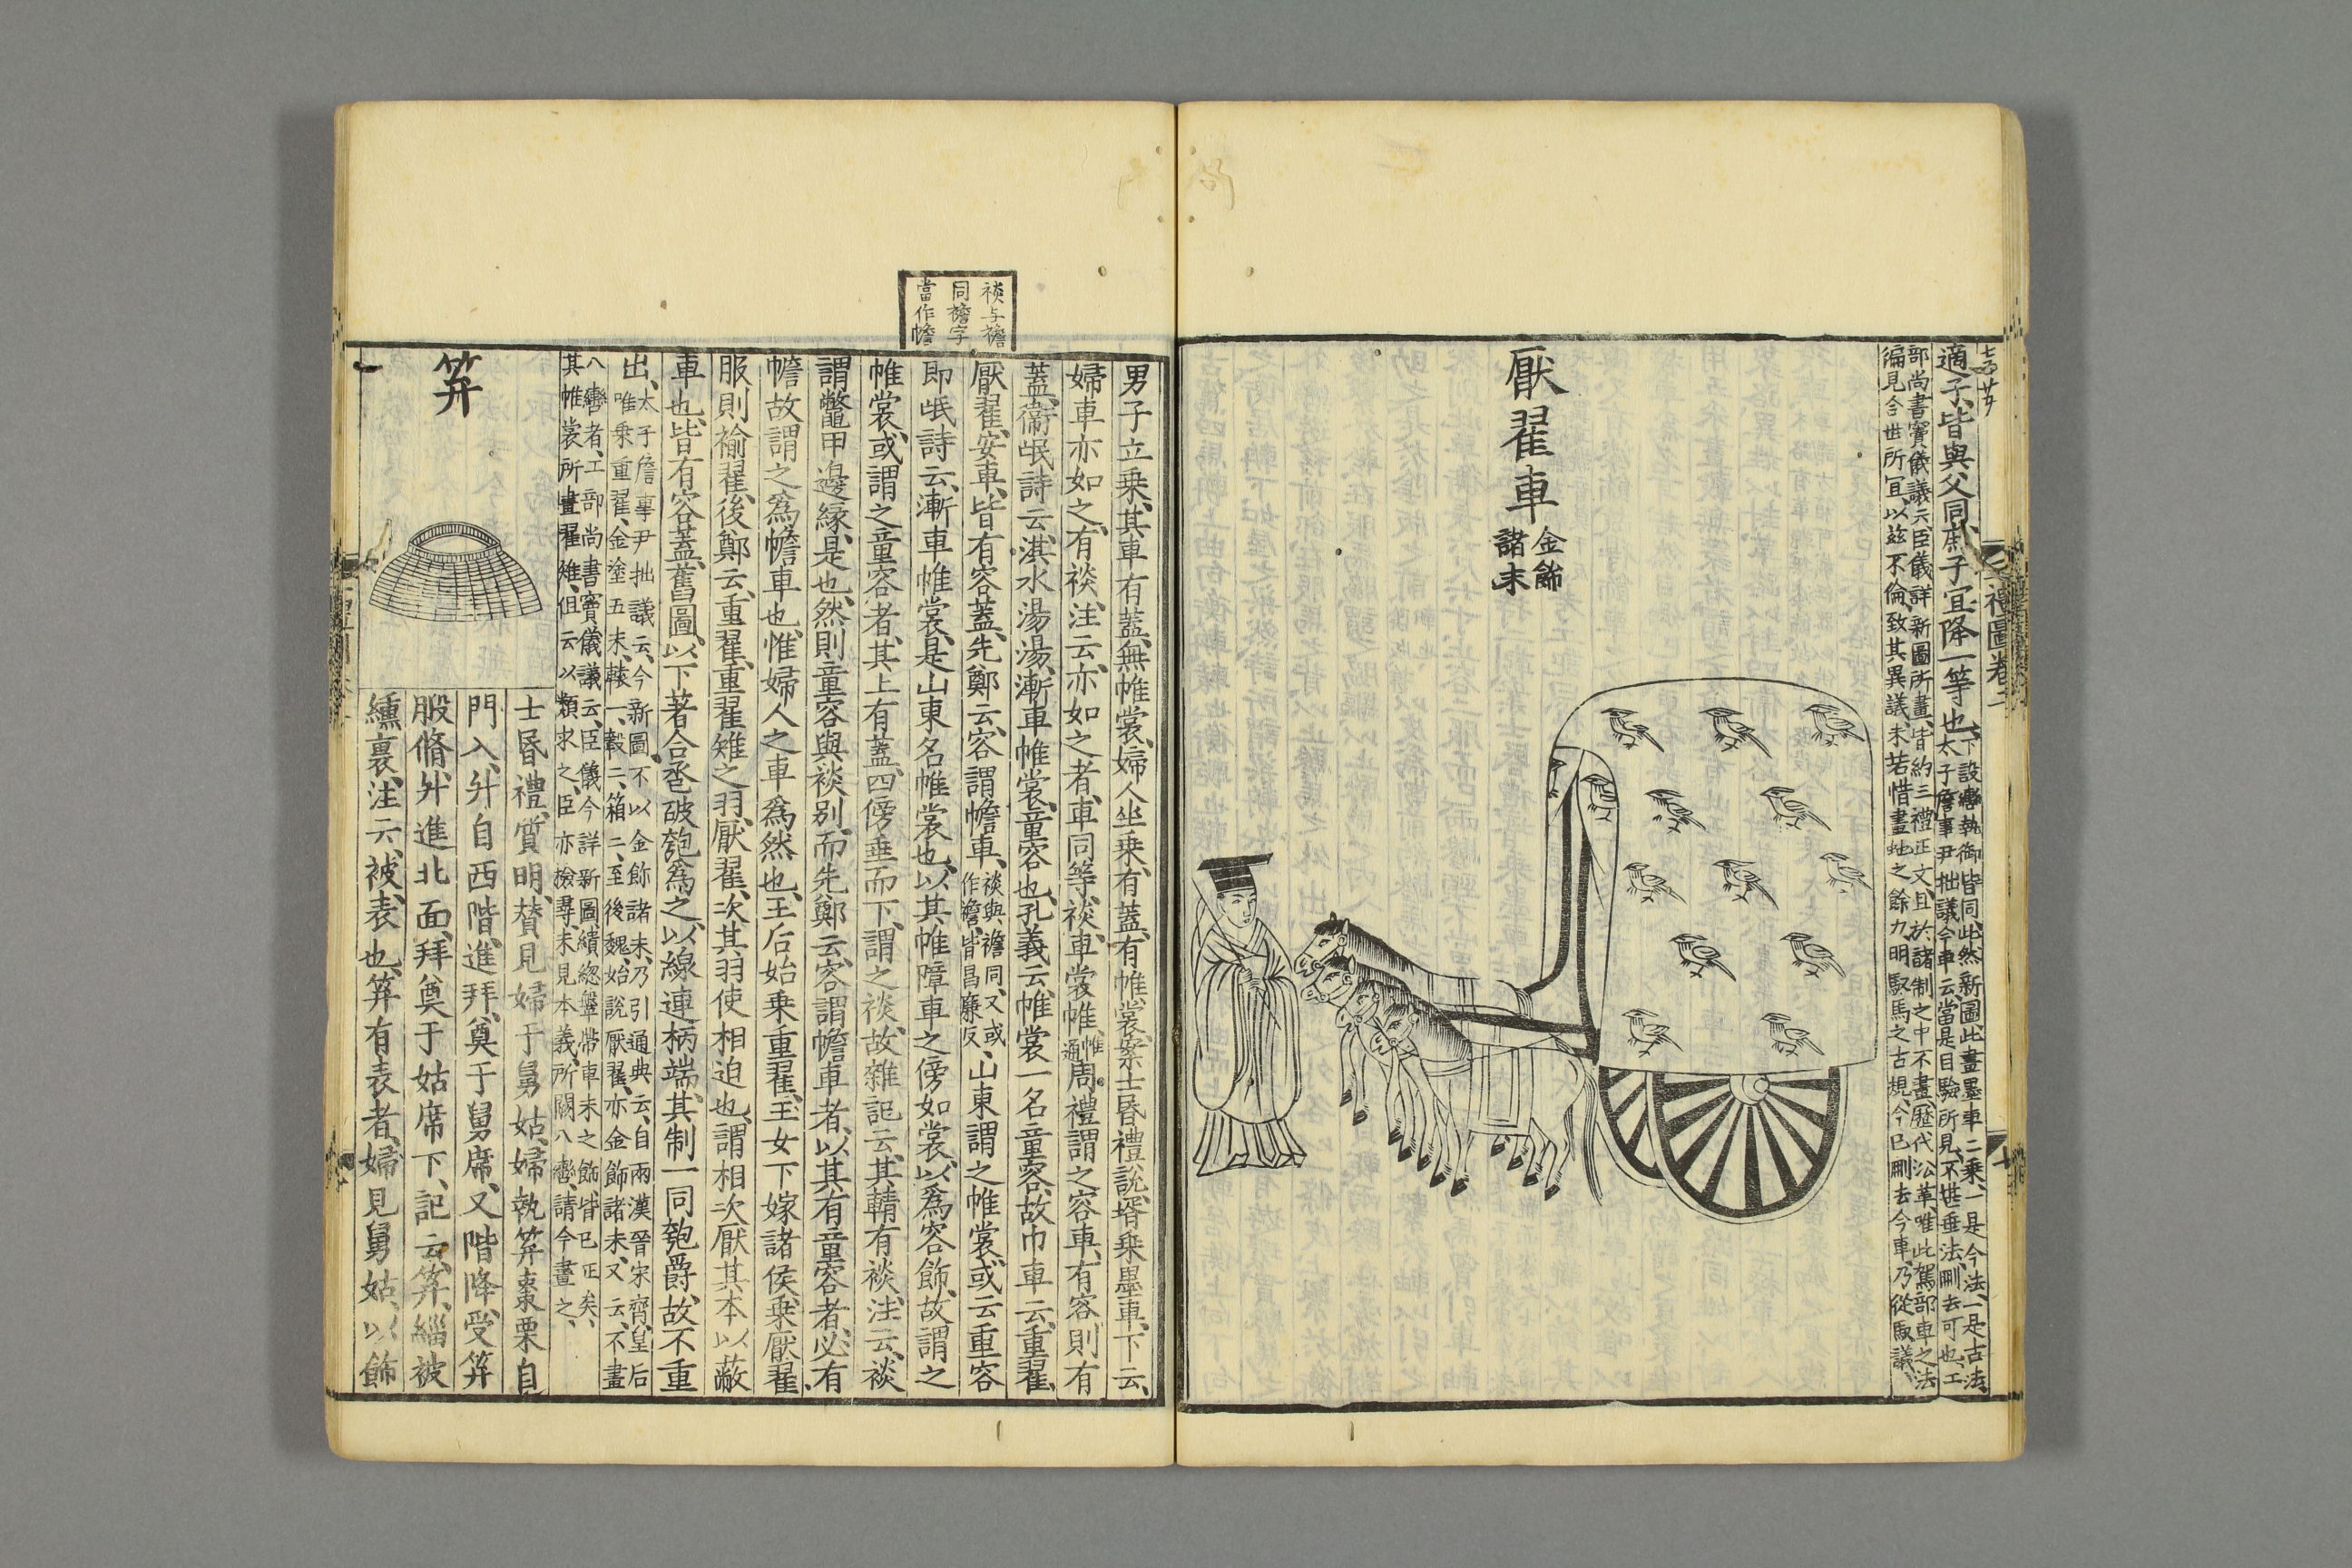 適子、皆與父同、庶子宜降一等也、下設轡執御皆同、此然新圖此畫墨車二乗、一是今法、一是古法、
太子詹事尹拙議、今車云、當是目驗所見、不堪垂法、刪去可也、工
部尚書竇儀議云、臣儀詳新圖所畫、皆約三禮正文、且於諸制之中不畫歷代沿革、唯此駕部車之法
偏見今世所宜、以兹不倫、致其異議、未若惜畫虵之餘力、明馭馬之古規、今已刪去今車、乃從馭議、
禮圖卷二
厭翟車
金飾
諸末
男子立乗、其車有蓋、無帷裳、婦人坐乗、有蓋、有帷裳、案士昏禮說壻乗墨車、下云、
婦車亦如之、有裧、注云、亦如之者、車同等、裧、車裳帷、周禮謂之容車、有容則有
蓋、衞氓詩云、淇水湯湯、漸車帷裳、童容也、孔義云、帷裳一名童容、故巾車云、重翟、
厭翟、安車、皆有容蓋、先鄭云、容謂幨車、裧與襜同、又或
作襜、皆昌廉反、山東謂之帷裳、或云重容
即氓詩云、漸車帷裳、是山東名帷裳也、以其帷障車之傍如裳、以爲容飾、故謂之
帷裳、或謂之童容者、其上有蓋、四傍垂而下、謂之裧、故雜記云、其輤有裧、注云、裧
謂鼈甲邊緣、是也、然則童容與裧別、而先鄭云、容謂幨車者、以其有童容者、必有
幨、故謂之爲幨車也、惟婦人之車爲然也、王后始乗重翟、王女下嫁諸侯、乗厭翟、
服則褕翟、後鄭云、重翟、重翟雉之羽、厭翟、次其羽使相迫也、謂相次厭其本以蔽
車也、皆有容蓋、舊圖、以下著合卺破匏爲之、以線連柄端、其制一同匏爵、故不重
出、太子詹事尹拙議云、今新圖、不以金飾諸末、乃引通典云、自兩漢晉宋齊、皇后
唯乗重翟、金塗五末、轅一、轂二、箱二、至後魏、始說厭翟、亦金飾諸末、又云、不畫
八轡者、工部尚書竇儀議云、臣儀今詳新圖、繢緫鞶帶車末之飾、皆已正矣、
其帷裳所畫翟雉、但云以類求之、臣亦撿尋、未見本義、所闕八轡、請今畫之、
笲
士昏禮、質明、賛見婦于舅姑、婦執笲棗栗自
門入、升自西階、進拜、奠于舅席、又階降、受笲
腶脩、升進、北面、拜奠于姑席下、記云、笲、緇被
纁裏、注云、被、表也、笲有表者、婦見舅姑、以飾
裧与襜
同襜字
當作幨